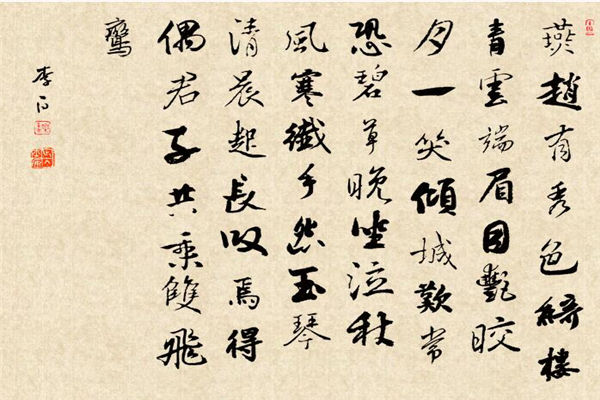 燕趙有秀色綺樓
青雲端眉目艷皎
月一笑傾城歡常
恐碧草晚坐泣秋
風寒纖手怨玉琴
清晨起長叹焉得
偶君子共乘雙飛
鸞
李白